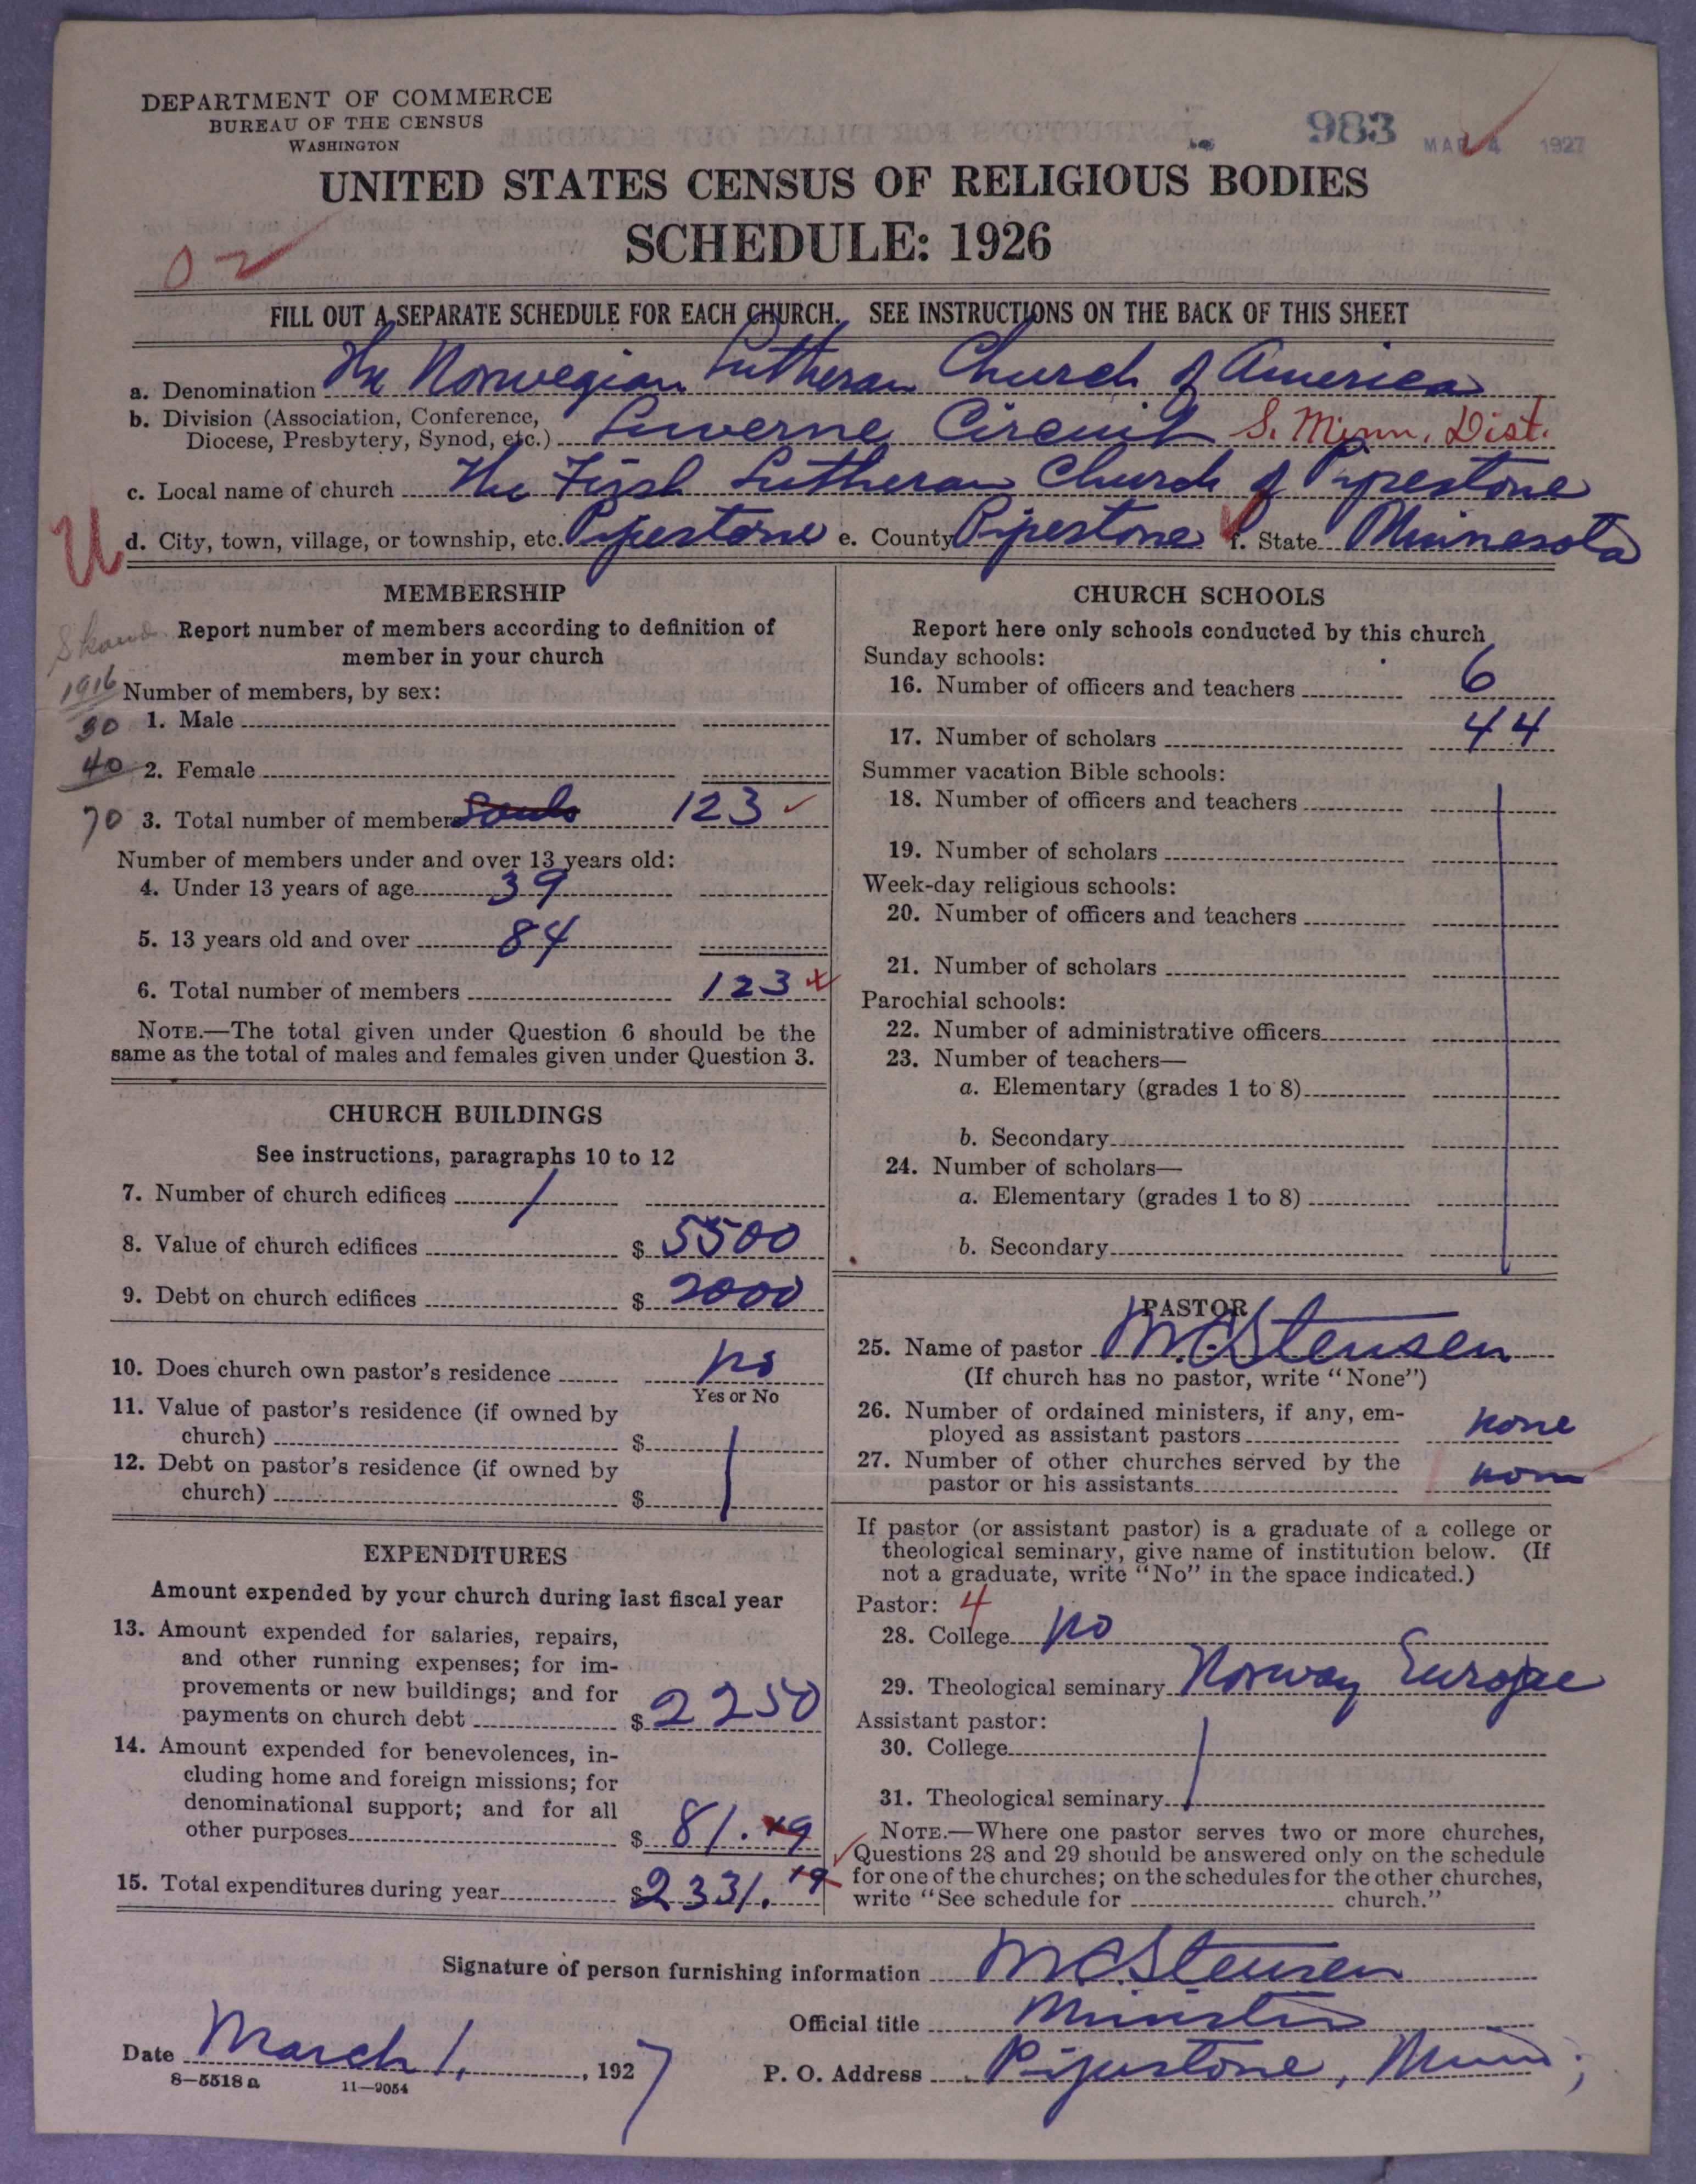 DEPARTMENT OF COMMERCE
BUREAU OF THE CENSUS
WASHINGTON
983 MAR 4 1927
UNITED STATES CENSUS OF RELIGIOUS BODIES
SCHEDULE: 1926
02
FILL OUT A SEPARATE SCHEDULE FOR EACH CHURCH. SEE INSTRUCTIONS ON THE BACK OF THIS SHEET
a. Denomination The Norwegian Lutheran Church of America
b. Division (Association, Conference,
Diocese, Presbytery, Synod, etc.) Luverne Circuit S. Minn. Dist.
c. Local name of church The First Lutheran Church of Pipestone
U d. City, town, village, or township, etc. Pipestone e. County Pipestone f. State Minnesota
MEMBERSHIP
Report number of members according to definition of
member in your church
1916 Number of members, by sex:
30 1. Male
40 2. Female
70 3. Total number of members souls 123
Number of members under and over 13 years old:
4. Under 13 years of age 39
5. 13 years old and over 84
6. Total number of members 123
NOTE.—The total given under Question 6 should be the
same as the total of males and females given under Question 3.
CHURCH BUILDINGS
See instructions, paragraphs 10 to 12
7. Number of church edifices 1
8. Value of church edifices $ 5500
9. Debt on church edifices $ 2000
10. Does church own pastor's residence no
Yes or No
11. Value of pastor's residence (if owned by
church) $
12. Debt on pastor's residence (if owned by
church) $
EXPENDITURES
Amount expended by your church during last fiscal year
13. Amount expended for salaries, repairs,
and other running expenses; for im-
provements or new buildings; and for
payments on church debt $ 2250
14. Amount expended for benevolences, in-
cluding home and foreign missions; for
denominational support; and for all
other purposes $ 81.19
15. Total expenditures during year $ 2331.19
CHURCH SCHOOLS
Report here only schools conducted by this church
Sunday schools:
16. Number of officers and teachers 6
17. Number of scholars 44
Summer vacation Bible schools:
18. Number of officers and teachers
19. Number of scholars
Week-day religious schools:
20. Number of officers and teachers
21. Number of scholars
Parochial schools:
22. Number of administrative officers
23. Number of teachers—
a. Elementary (grades 1 to 8)
b. Secondary
24. Number of scholars—
a. Elementary (grades 1 to 8)
b. Secondary
PASTOR
25. Name of pastor M.C. Stensen
(If church has no pastor, write "None")
26. Number of ordained ministers, if any, em-
ployed as assistant pastors none
27. Number of other churches served by the
pastor or his assistants none
If pastor (or assistant pastor) is a graduate of a college or
theological seminary, give name of institution below. (If
not a graduate, write "No" in the space indicated.)
Pastor: 4
28. College no
29. Theological seminary Norway Europe
Assistant pastor:
30. College
31. Theological seminary
NOTE.—Where one pastor serves two or more churches,
Questions 28 and 29 should be answered only on the schedule
for one of the churches; on the schedules for the other churches,
write "See schedule for church."
Signature of person furnishing information M.C. Stensen
Official title Minister
Date March 1, 1927 P. O. Address Pipestone, Minn;
8—5518 a 11—9054